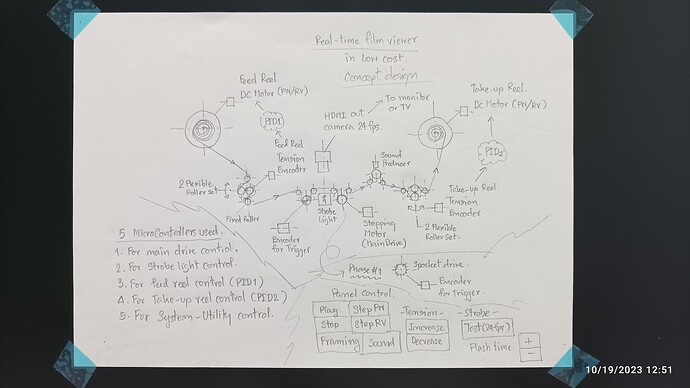 Real-time film viewer
in low cost.
Concept design
Feed Reel.
DC Motor (FW/RV)
PID1
Feed Reel
Tension
Encoder
HDMI out
camera 24 fps.
To monitor
or TV
Take-up Reel.
DC Motor (FW/RV)
PID2
Sound
Producer
2 Flexible
Roller set
Fixed Roller
Encoder
for Trigger
Strobe
Light
Stepping
Motor
(Main Drive)
Take-up Reel
Tension
Encoder
2 Flexible
Roller Set.
5 MicroControllers used.
1. For main drive control.
2. For strobe light control.
3. For feed reel control (PID1)
4. For Take-up reel control (PID2)
5. For System-Utility control.
Phase#1
Spocket drive.
Encoder
for Trigger.
Pannel control.
Play
Step FW
Stop
Step RV
Framing
Sound
-Tension-
Increase
Decrease
-Strobe-
Test (24fps)
Flash time
+
-
10/19/2023 12:51